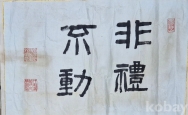 非禮
不動
kobay